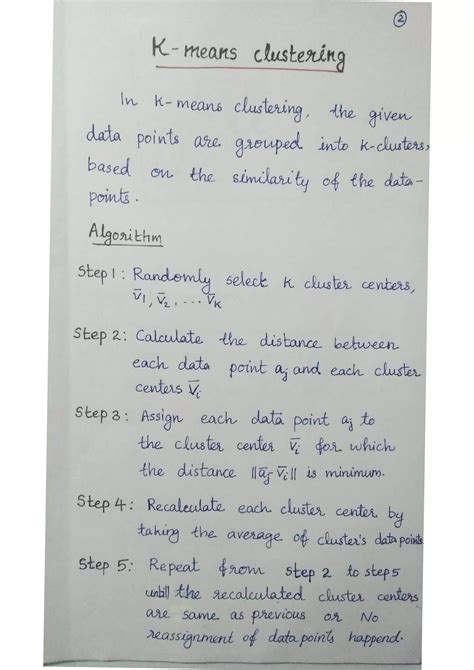 2
K-means clustering
In K-means clustering, the given
data points are grouped into K-clusters,
based on the similarity of the data-
points.
Algorithm
Step 1 : Randomly select K cluster centers,
v̄₁, v̄₂, ... v̄ₖ
Step 2: Calculate the distance between
each data point aⱼ and each cluster
centers v̄ᵢ
Step 3 : Assign each data point aⱼ to
the cluster center v̄ᵢ for which
the distance ||āⱼ-v̄ᵢ|| is minimum.
Step 4 : Recalculate each cluster center by
taking the average of cluster's data points
Step 5: Repeat from step 2 to step 5
untill the recalculated cluster centers
are same as previous or No
reassignment of data points happend.